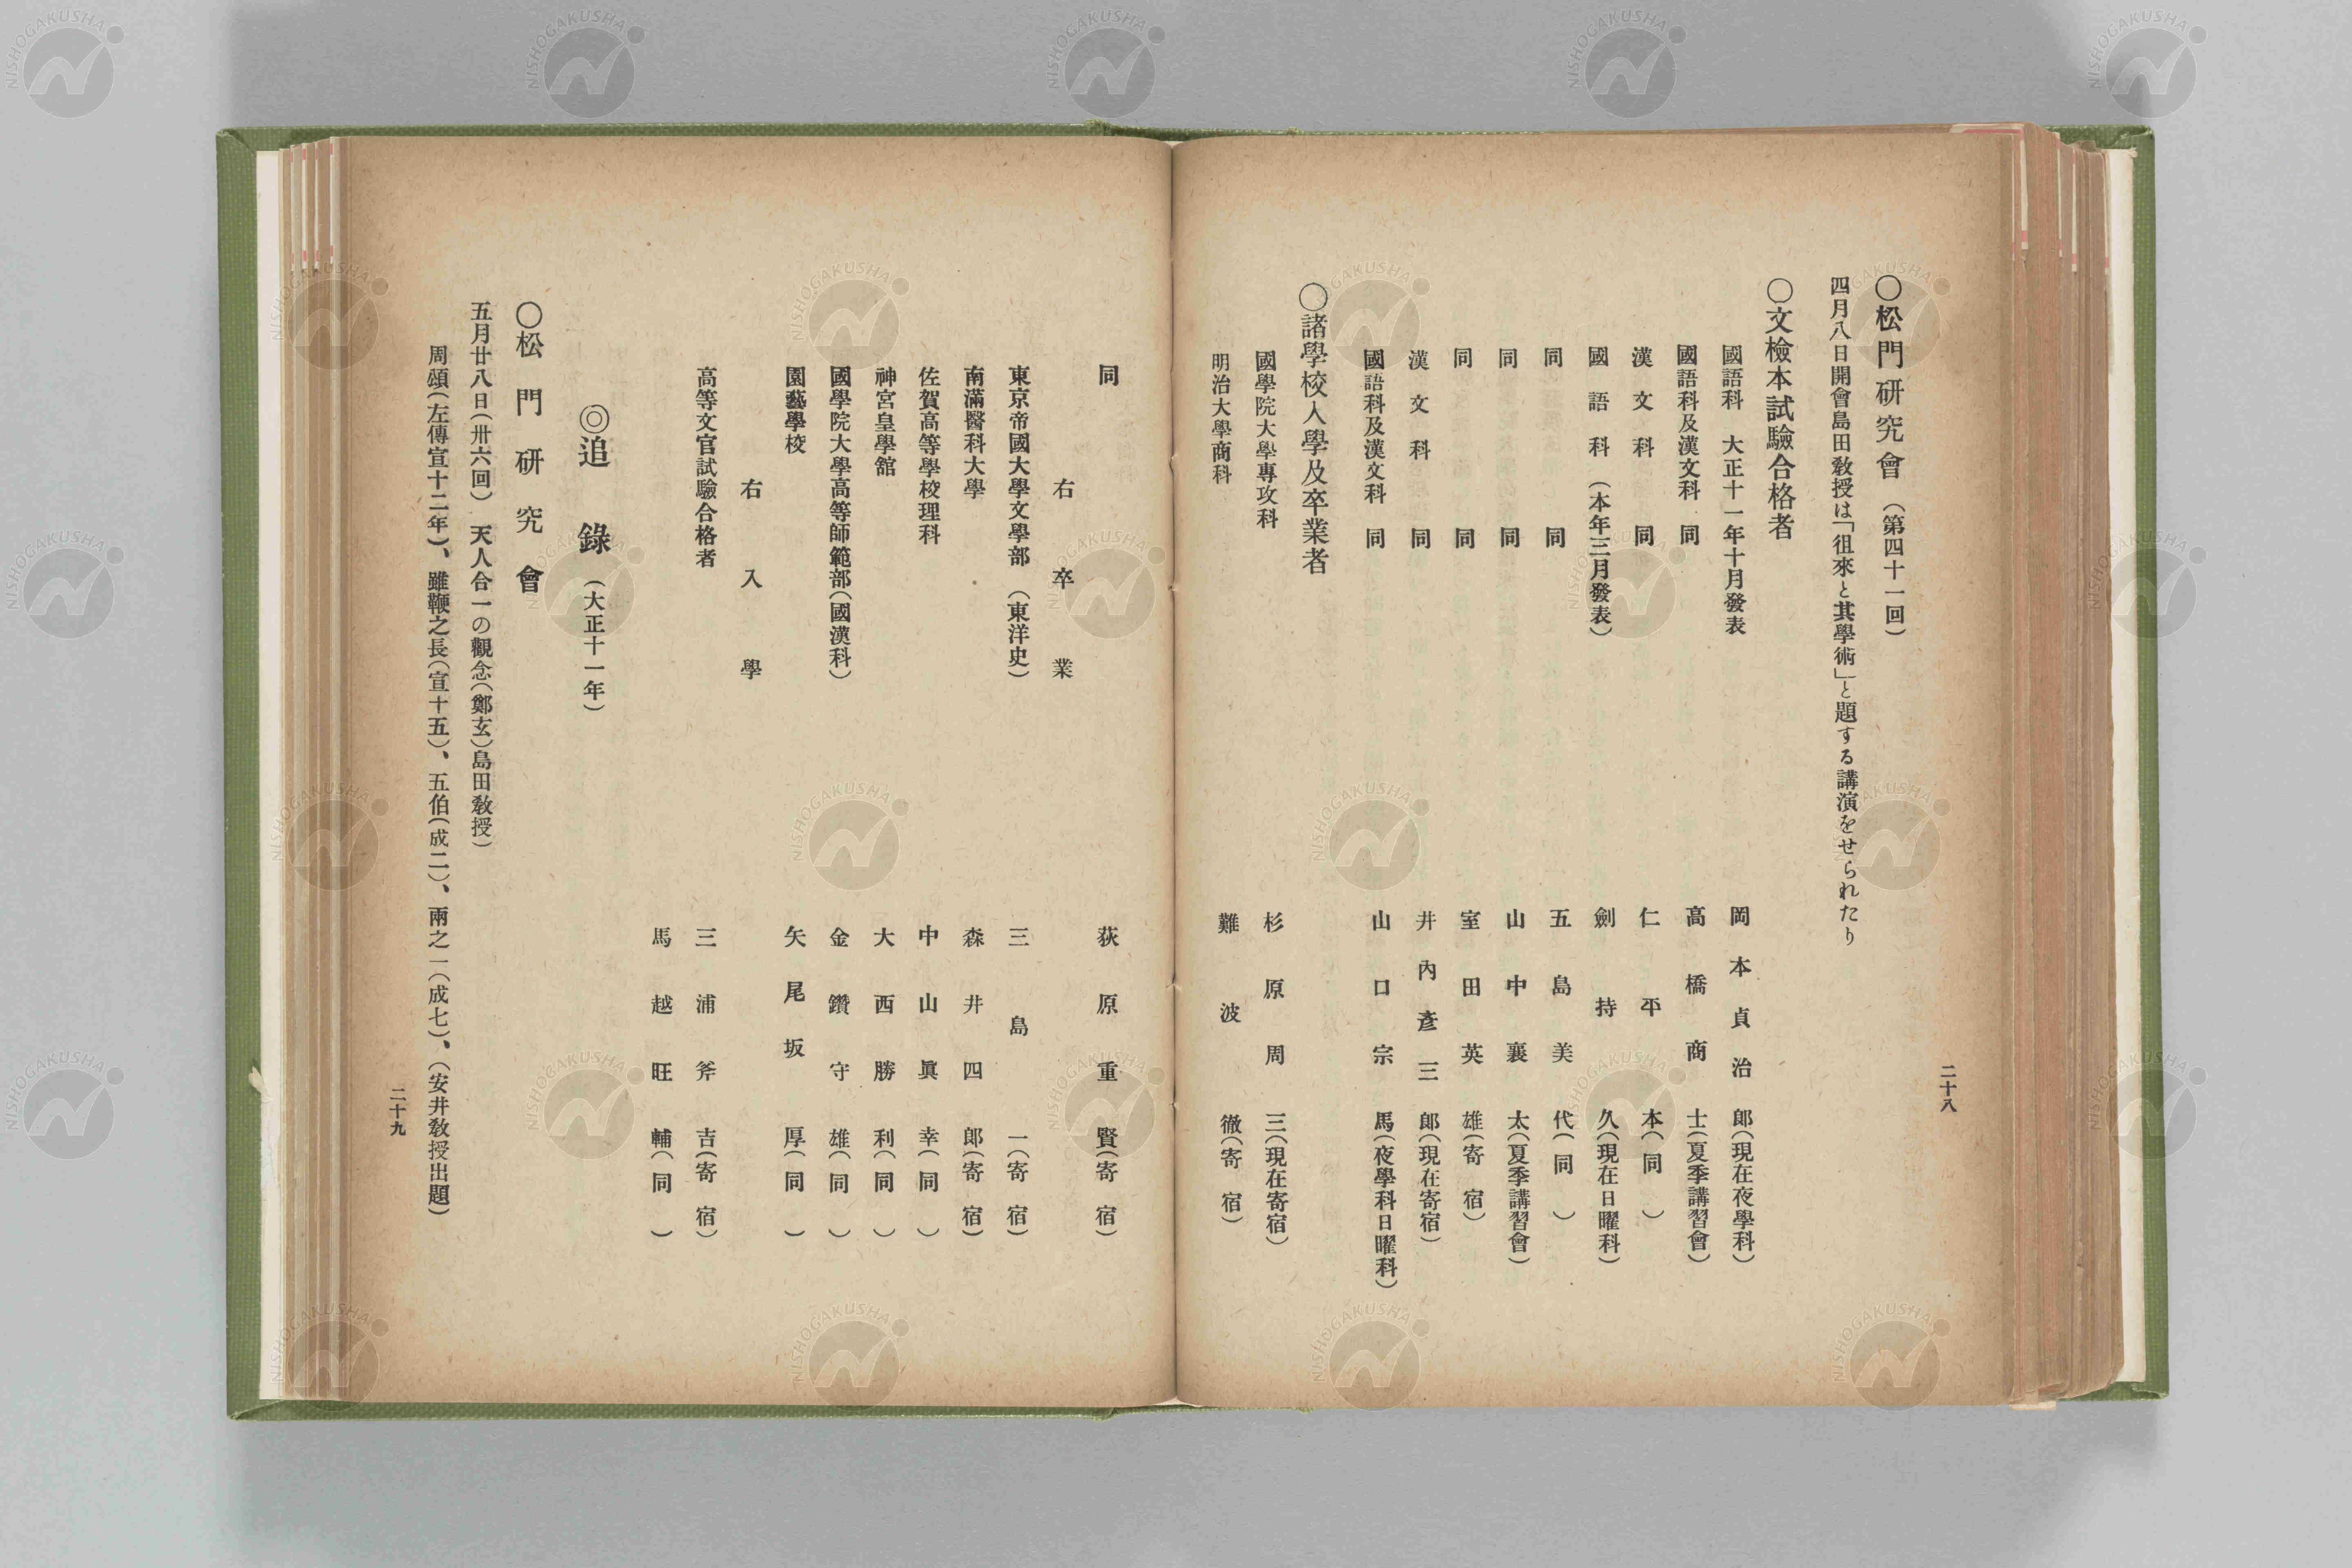 二十八
○松門研究會（第四十一回）
四月八日開會島田敎授は「徂來と其學術」と題する講演をせられたり
○文檢本試驗合格者
國語科 大正十一年十月發表 岡本貞治郎（現在夜學科）
國語科及漢文科 同 高橋商士（夏季講習會）
漢文科 同 仁平本（同）
國語科（本年三月發表） 劍持久（現在日曜科）
同 同 五島美代（同）
同 同 山中襄太（夏季講習會）
同 同 室田英雄（寄宿）
漢文科 同 井內彥三郎（現在寄宿）
國語科及漢文科 同 山口宗馬（夜學科日曜科）
○諸學校入學及卒業者
國學院大學專攻科 杉原周三（現在寄宿）
明治大學商科 難波徹（寄宿）
同 荻原重賢（寄宿）
右卒業
東京帝國大學文學部（東洋史） 三島一（寄宿）
南滿醫科大學 森井四郎（寄宿）
佐賀高等學校理科 中山眞幸（同）
神宮皇學館 大西勝利（同）
國學院大學高等師範部（國漢科） 金鑽守雄（同）
園藝學校 矢尾坂厚（同）
右入學
高等文官試驗合格者 三浦斧吉（寄宿）
馬越旺輔（同）
◎追錄（大正十一年）
○松門研究會
五月廿八日（卅六回） 天人合一の觀念（鄭玄）島田敎授）
周頌（左傳宣十二年）、雖鞭之長（宣十五）、五伯（成二）、兩之一（成七）、（安井敎授出題）
二十九
NISHOGAKUSHA